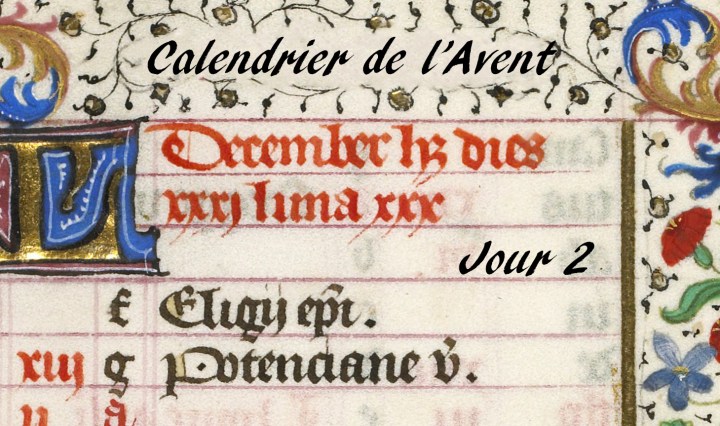 Calendrier de l'Avent
KL
December hȝ dies
xxxj luna xxx
Jour 2
f Eligij ep̃i.
xiij g Potenciane v̄.
ij a